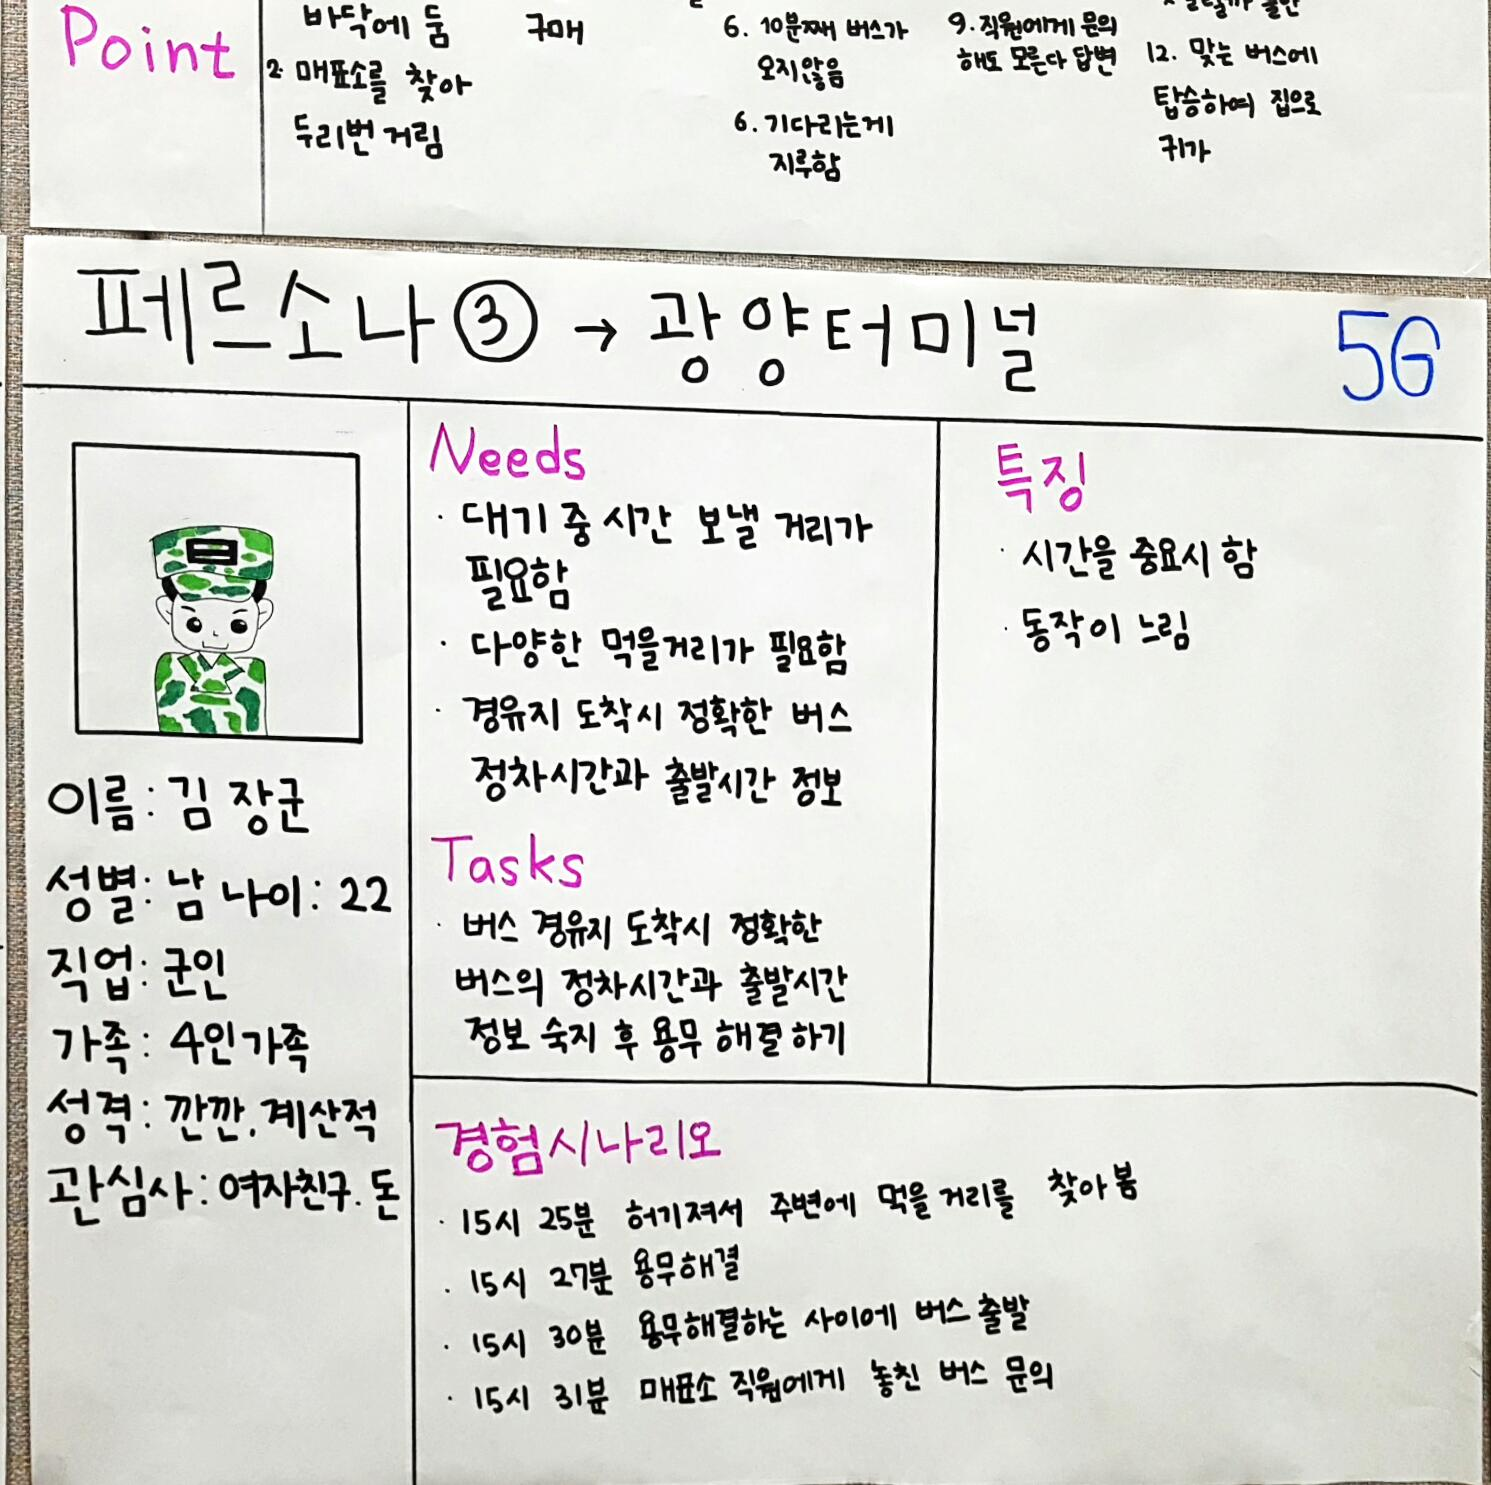 Point
바닥에 둠
2. 매표소를 찾아
두리번 거림
구매
6. 10분째 버스가
오지않음
6. 기다리는게
지루함
9. 직원에게 문의
해도 모른다 답변
12. 맞는 버스에
탑승하여 집으로
귀가
페르소나 ③ → 광양터미널
5G
이름: 김 장군
성별: 남 나이: 22
직업: 군인
가족: 4인가족
성격: 깐깐, 계산적
관심사: 여자친구. 돈
Needs
· 대기 중 시간 보낼 거리가
필요함
· 다양한 먹을거리가 필요함
· 경유지 도착시 정확한 버스
정차시간과 출발시간 정보
Tasks
· 버스 경유지 도착시 정확한
버스의 정차시간과 출발시간
정보 숙지 후 용무 해결하기
특징
· 시간을 중요시 함
· 동작이 느림
경험시나리오
· 15시 25분 허기져서 주변에 먹을거리를 찾아봄
· 15시 27분 용무해결
· 15시 30분 용무해결하는 사이에 버스출발
· 15시 31분 매표소 직원에게 놓친 버스 문의